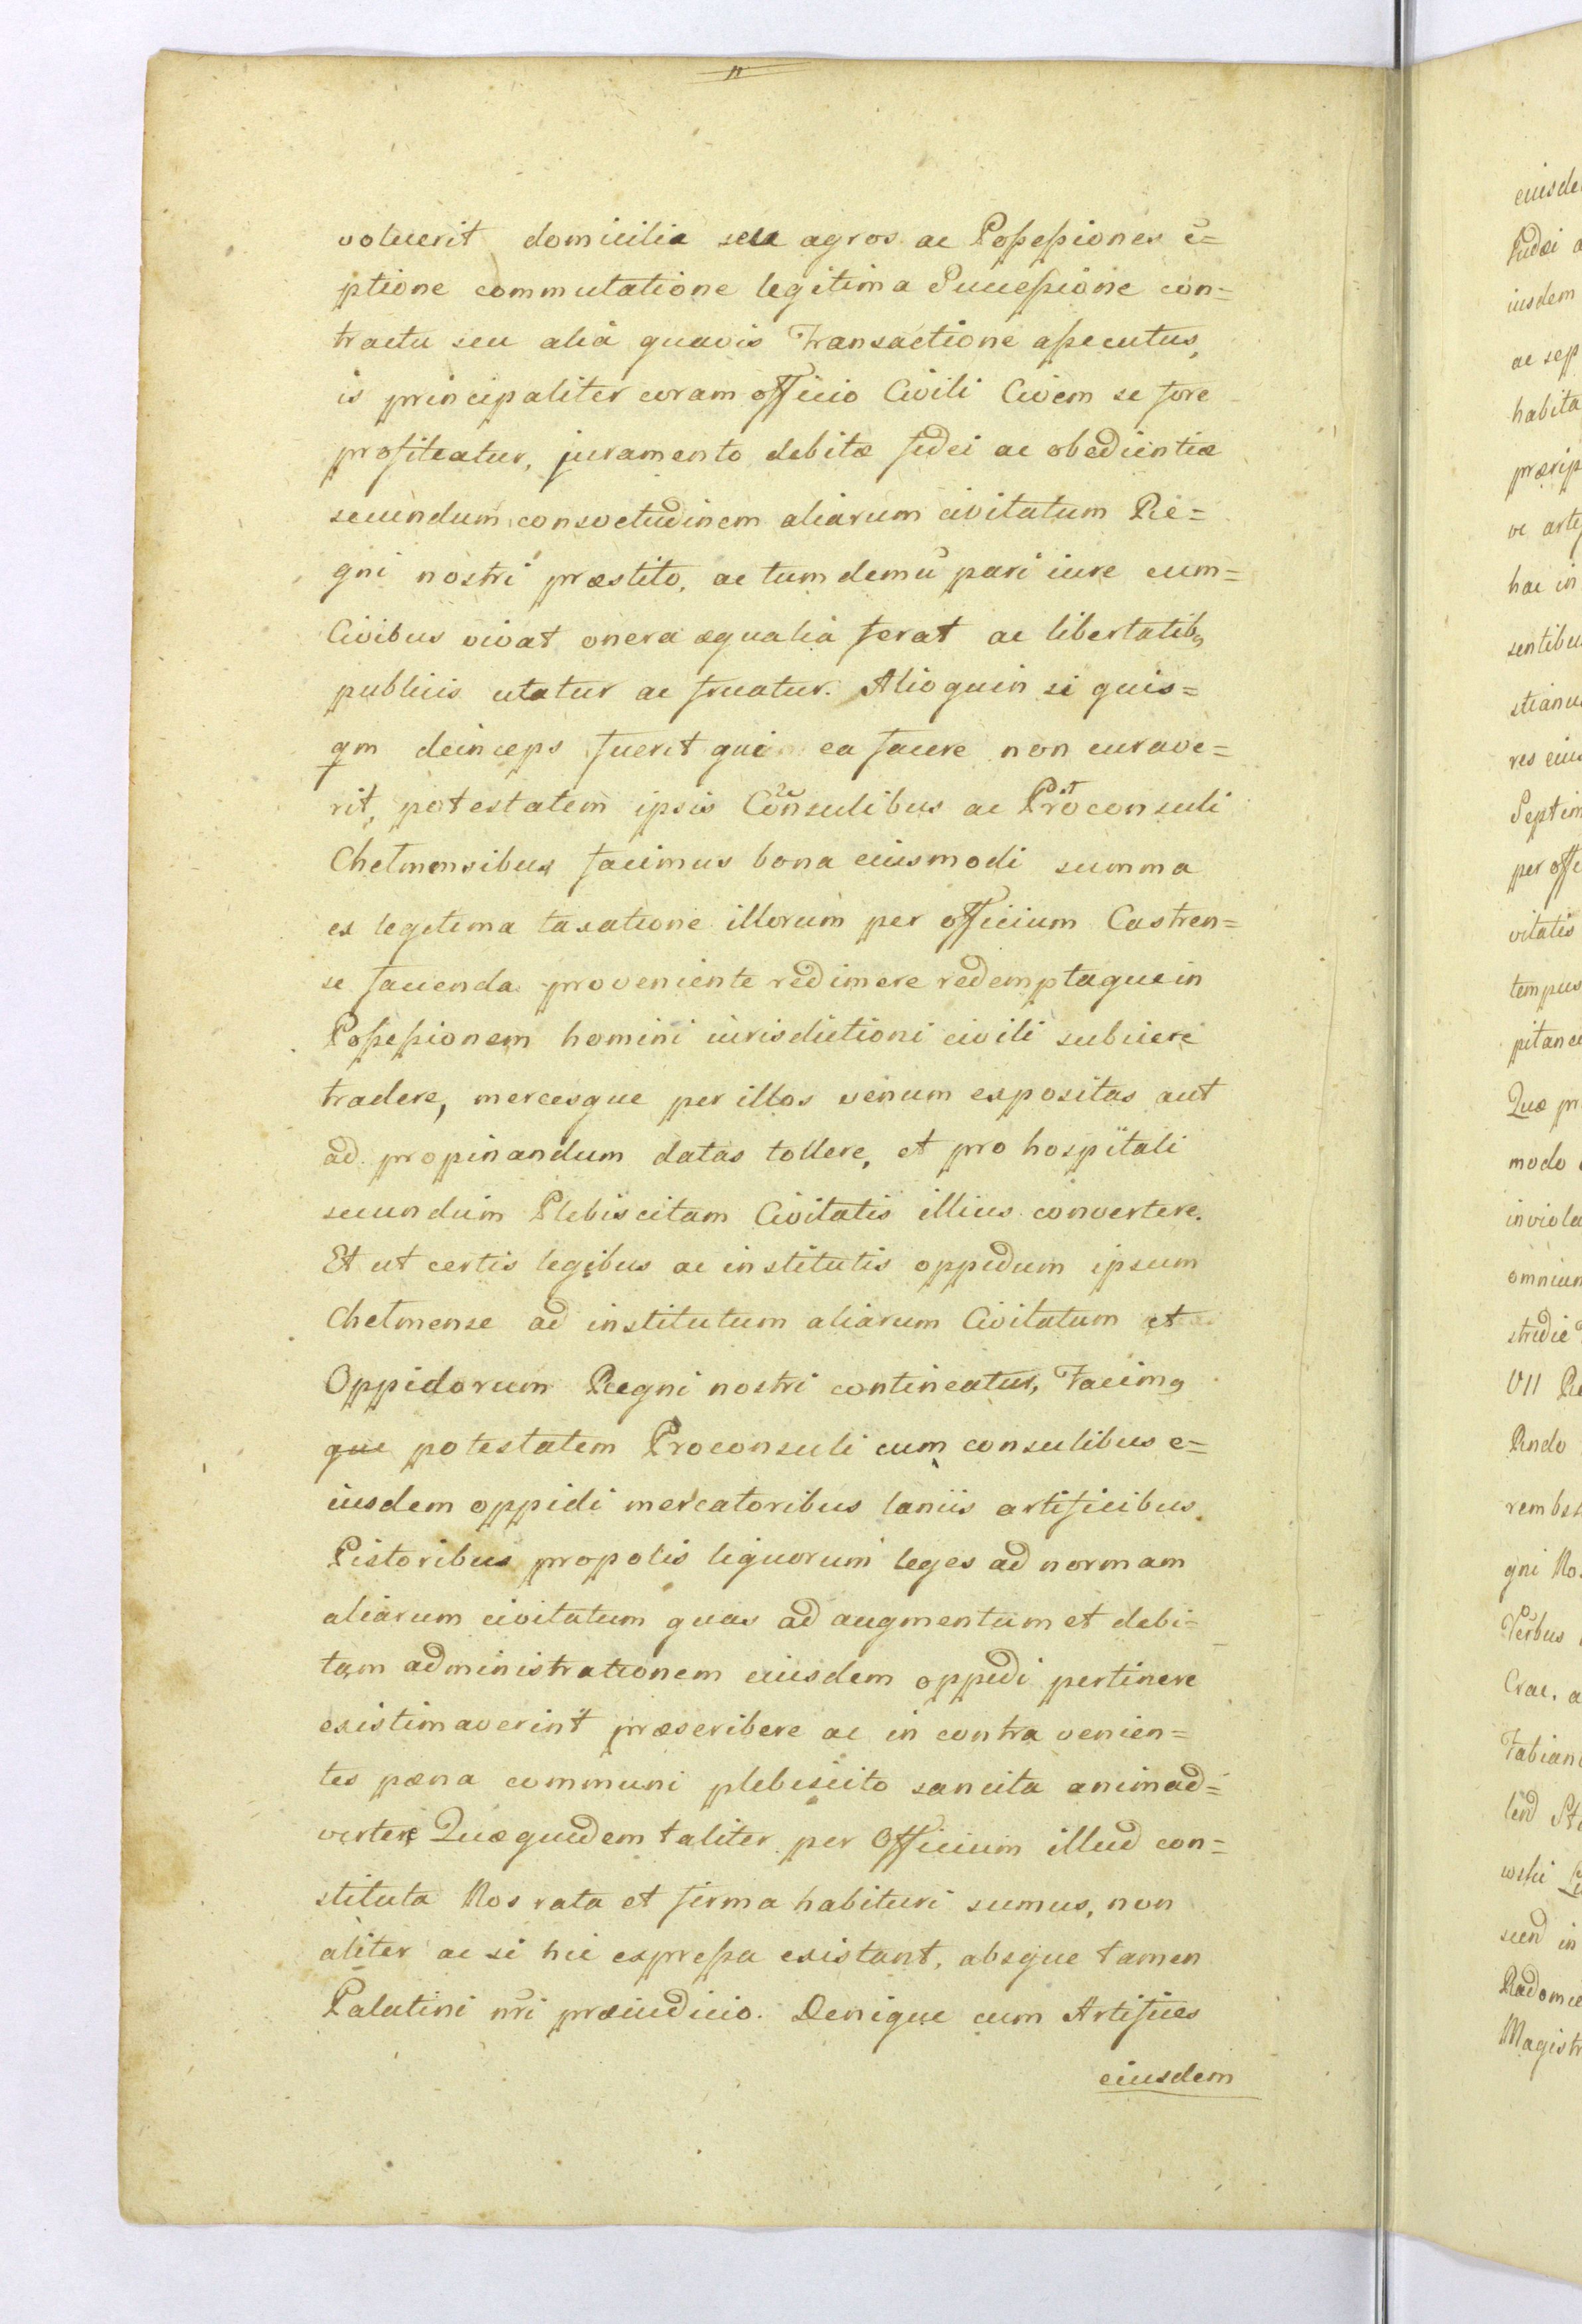 voluerit domicilia seu agros ac Poſseſsiones ē=
ptione commutatione legitima Succeſsione con=
tractu seu aliâ quavis Transactione aſsecutus,
is principaliter coram officio Civili Civem se fore
profiteatur, juramento debitæ fidei ac obedientiæ
secundum consvetudinem aliarum civitatum Re=
gni nostri præstito, ac tum demū pari iure cum=
Civibus vivat onera æqualia ferat ac libertatibꝫ
publicis utatur ac fruatur. Alioquin si quis=
qm deinceps fuerit qui ea facere non curave=
rit, potestatem ipsis Consulibus ac Proconsuli
Chelmensibus facimus bona eiusmodi summa
ex legitima taxatione illorum per officium Castren=
se facienda proveniente redimere redemptaque in
Poſseſsionem homini iurisdictioni civili subiicere
tradere, mercesque per illos venum expositas aut
ad propinandum datas tollere, et pro hospitali
secundum Plebiscitam Civitatis illius convertere.
Et ut certis legibus ac institutis oppidum ipsum
Chelmense ad institutum aliarum Civitatum et
Oppidorum Regni nostri contineatur, Facimꝰ
que potestatem Proconsuli cum consulibus e=
iusdem oppidi mercatoribus laniis artificibus
Pistoribus propolis liquorum leges ad normam
aliarum civitatum quas ad augmentum et debi=
tam administrationem eiusdem oppidi pertinere
existimaverint præscribere ac in contra venien=
tes pæna communi plebiscito sancita animad=
vertere Quæquidem taliter per Officium illud con=
stituta Nos rata et firma habituri sumus, non
aliter ac si hic expreſsa existant, absque tamen
Palatini nri præiudicio. Denique cum Artifices
eiusdem